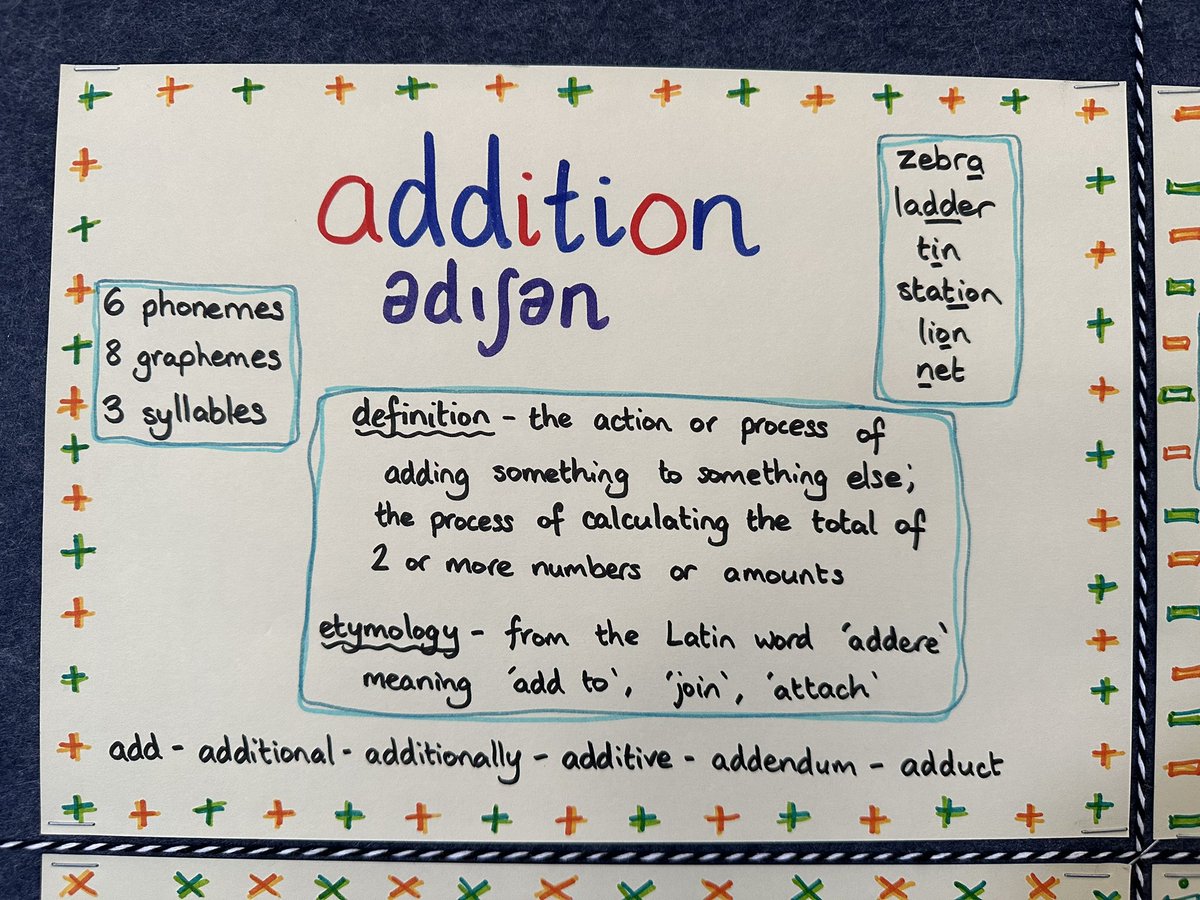 addition
ədıʃən
zebra
ladder
tin
station
lion
net
6 phonemes
8 graphemes
3 syllables
definition - the action or process of
adding something to something else;
the process of calculating the total of
2 or more numbers or amounts
etymology - from the Latin word 'addere'
meaning 'add to', 'join', 'attach'
add - additional - additionally - additive - addendum - adduct